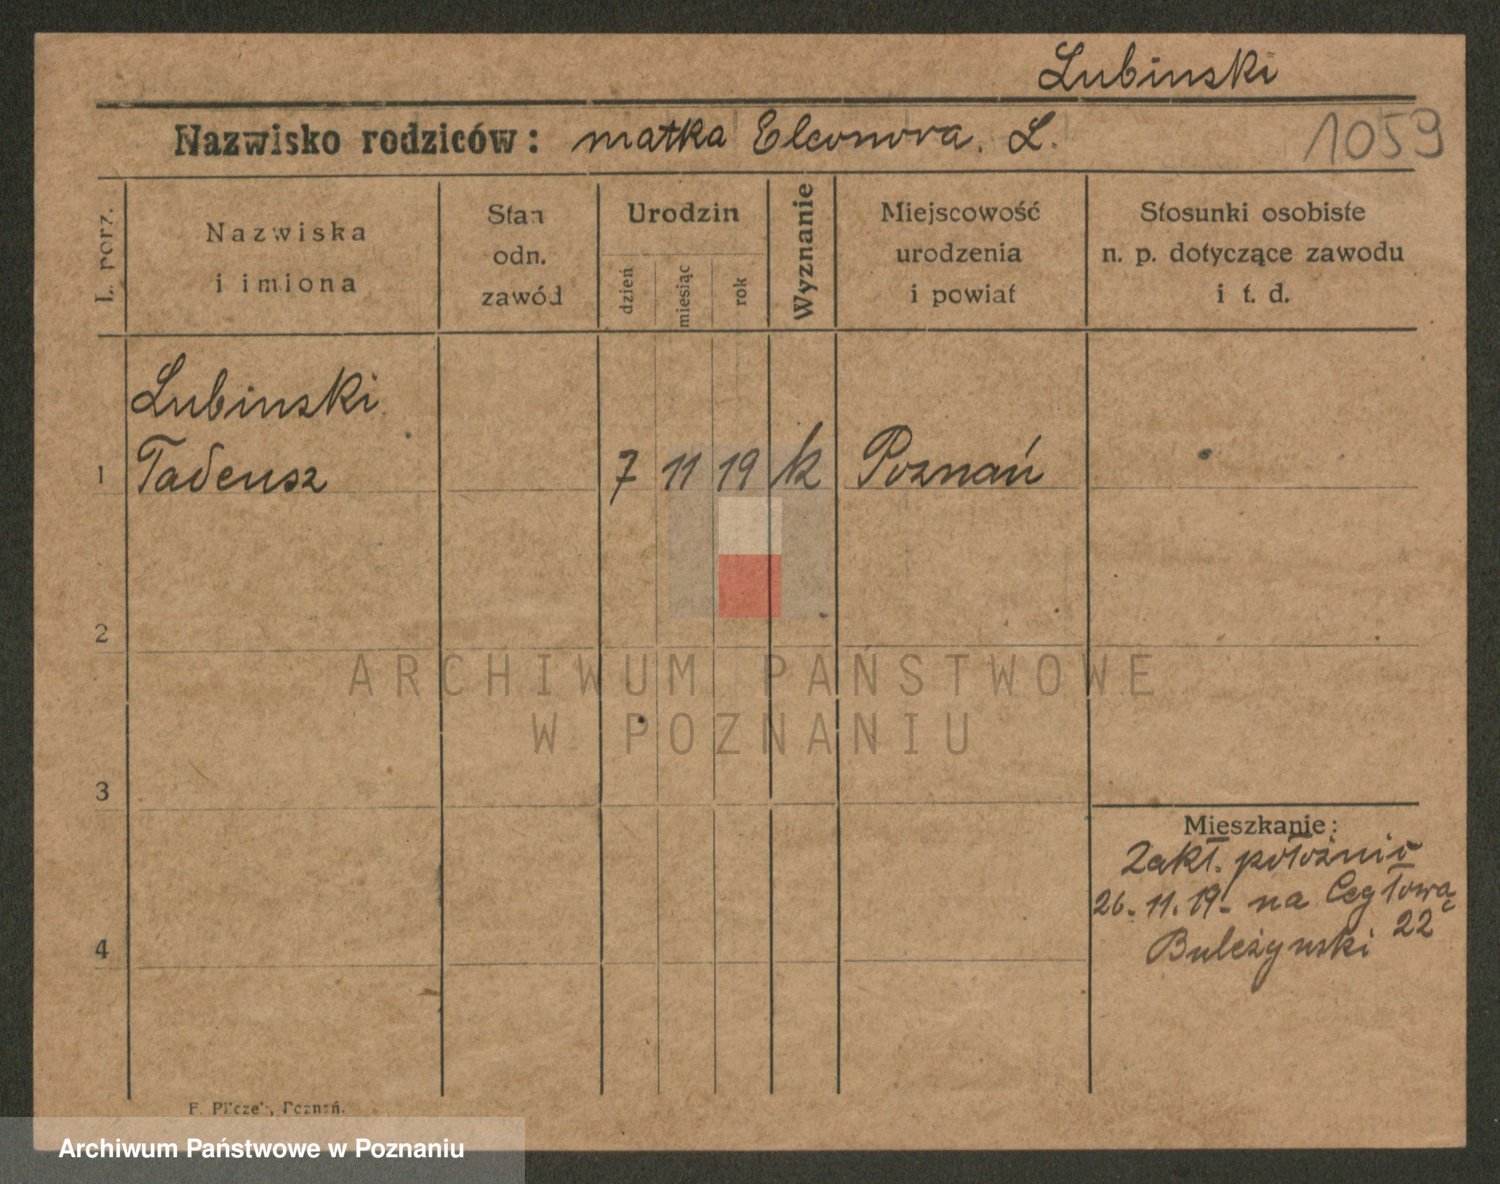 Lubinski
Nazwisko rodziców: matka Eleonora. L.
1059
L. porz.
Nazwiska
i imiona
Stan
odn.
zawód
Urodzin
dzień
miesiąc
rok
Wyznanie
Miejscowość
urodzenia
i powiat
Stosunki osobiste
n. p. dotyczące zawodu
i t. d.
Lubinski
1 Tadeusz 7 11 19 k Poznań
2
ARCHIWUM PAŃSTWOWE
W POZNANIU
3
Mieszkanie:
Zakł. położnic
26. 11. 19 - na Cegłową
22
4
Poznań.
Archiwum Państwowe w Poznaniu